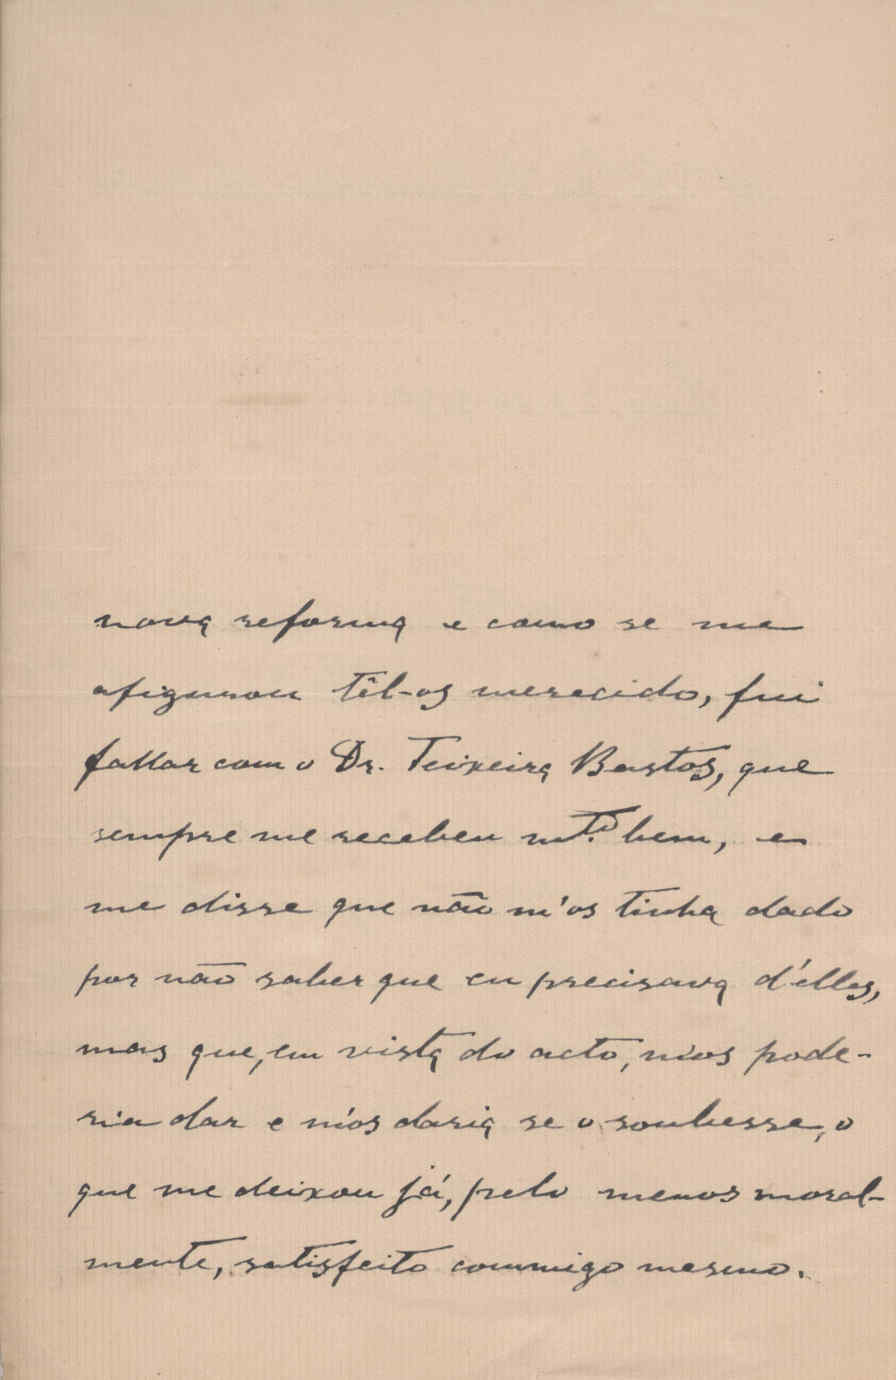 nova reforma e como se me
afigurou têl-os merecido, fui
fallar com o Dr. Teixeira Bastos, que
sempre me recebeu mto. bem, e
me disse que não m'os tinha dado
por não saber que eu precisava d'elles,
mas que, em vista do acto, m'os pode-
ria dar e m'os daria se o soubesse, o
que me deixou já, pelo menos moral-
mente, satisfeito commigo mesmo.